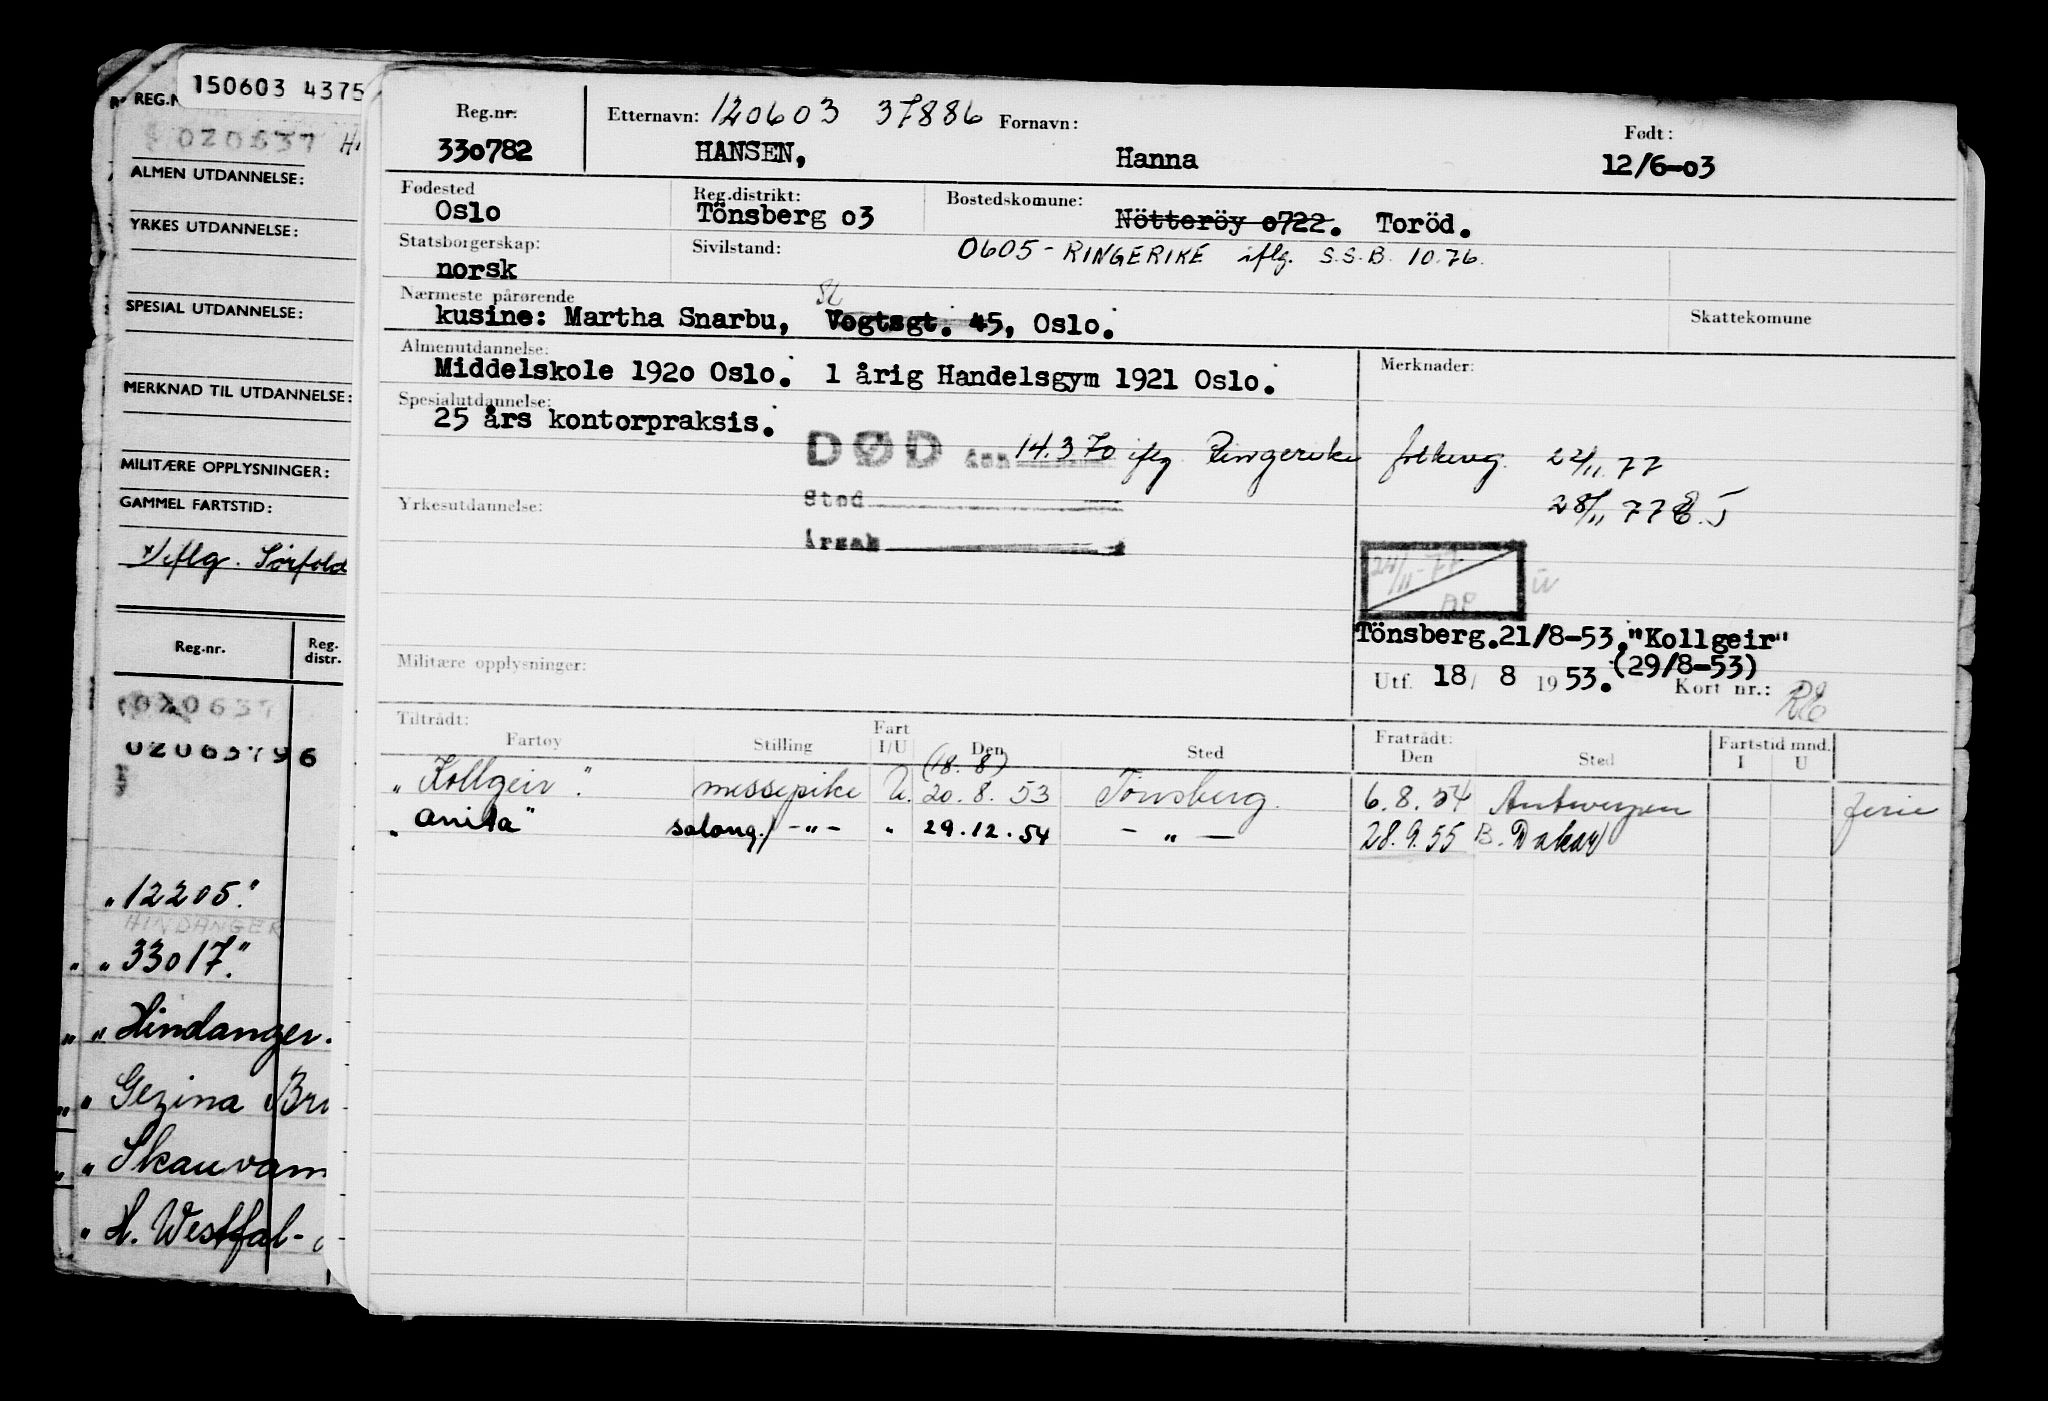 150603 4375
REG.N
020637 H
ALMEN UTDANNELSE:
YRKES UTDANNELSE:
SPESIAL UTDANNELSE:
MERKNAD TIL UTDANNELSE:
MILITÆRE OPPLYSNINGER:
GAMMEL FARTSTID:
x) iflg. Sørfold
Reg.nr. Reg. distr.
020637
02063796
"12205."
HINDANGER
" "33017."
" " Hindanger.
" " Gezina Br
" " Skauvann
" H. Westfal-
Reg.nr. Etternavn: 120603 37886 Fornavn: Født:
330782 HANSEN, Hanna 12/6-03
Fødested Reg.distrikt: Bostedskomune:
Oslo Tönsberg o3 Nötteröy o722. Toröd.
Statsborgerskap: Sivilstand: 0605 - RINGERIKE iflg. S.S.B. 10.76.
norsk
Nærmeste pårørende
kusine: Martha Snarbu, Vogtsgt. 45, Oslo. Skattekomune
Almenutdannelse: Merknader:
Middelskole 1920 Oslo. 1 årig Handelsgym 1921 Oslo.
Spesialutdannelse:
25 års kontorpraksis.
DØD den 14.3.70 iflg Ringerike folkereg. 22/11.77
Sted 28/11 77 E.J
Yrkesutdannelse:
Årsak
24/11-77
Tönsberg.21/8-53."Kollgeir"
(29/8-53)
Militære opplysninger: Utf. 18/ 8 1953. Kort nr.:
Tiltrådt: Fratrådt: Fartstid mnd.
Fartøy Stilling Fart I/U Den Sted Den Sted I U
(18.8)
"Kollgeir". messepike U. 20.8.53 Tönsberg. 6.8.54 Antwerpen ferie
"Anita" salong./ -"- " 29.12.54 - " - 28.9.55 B. Dakar